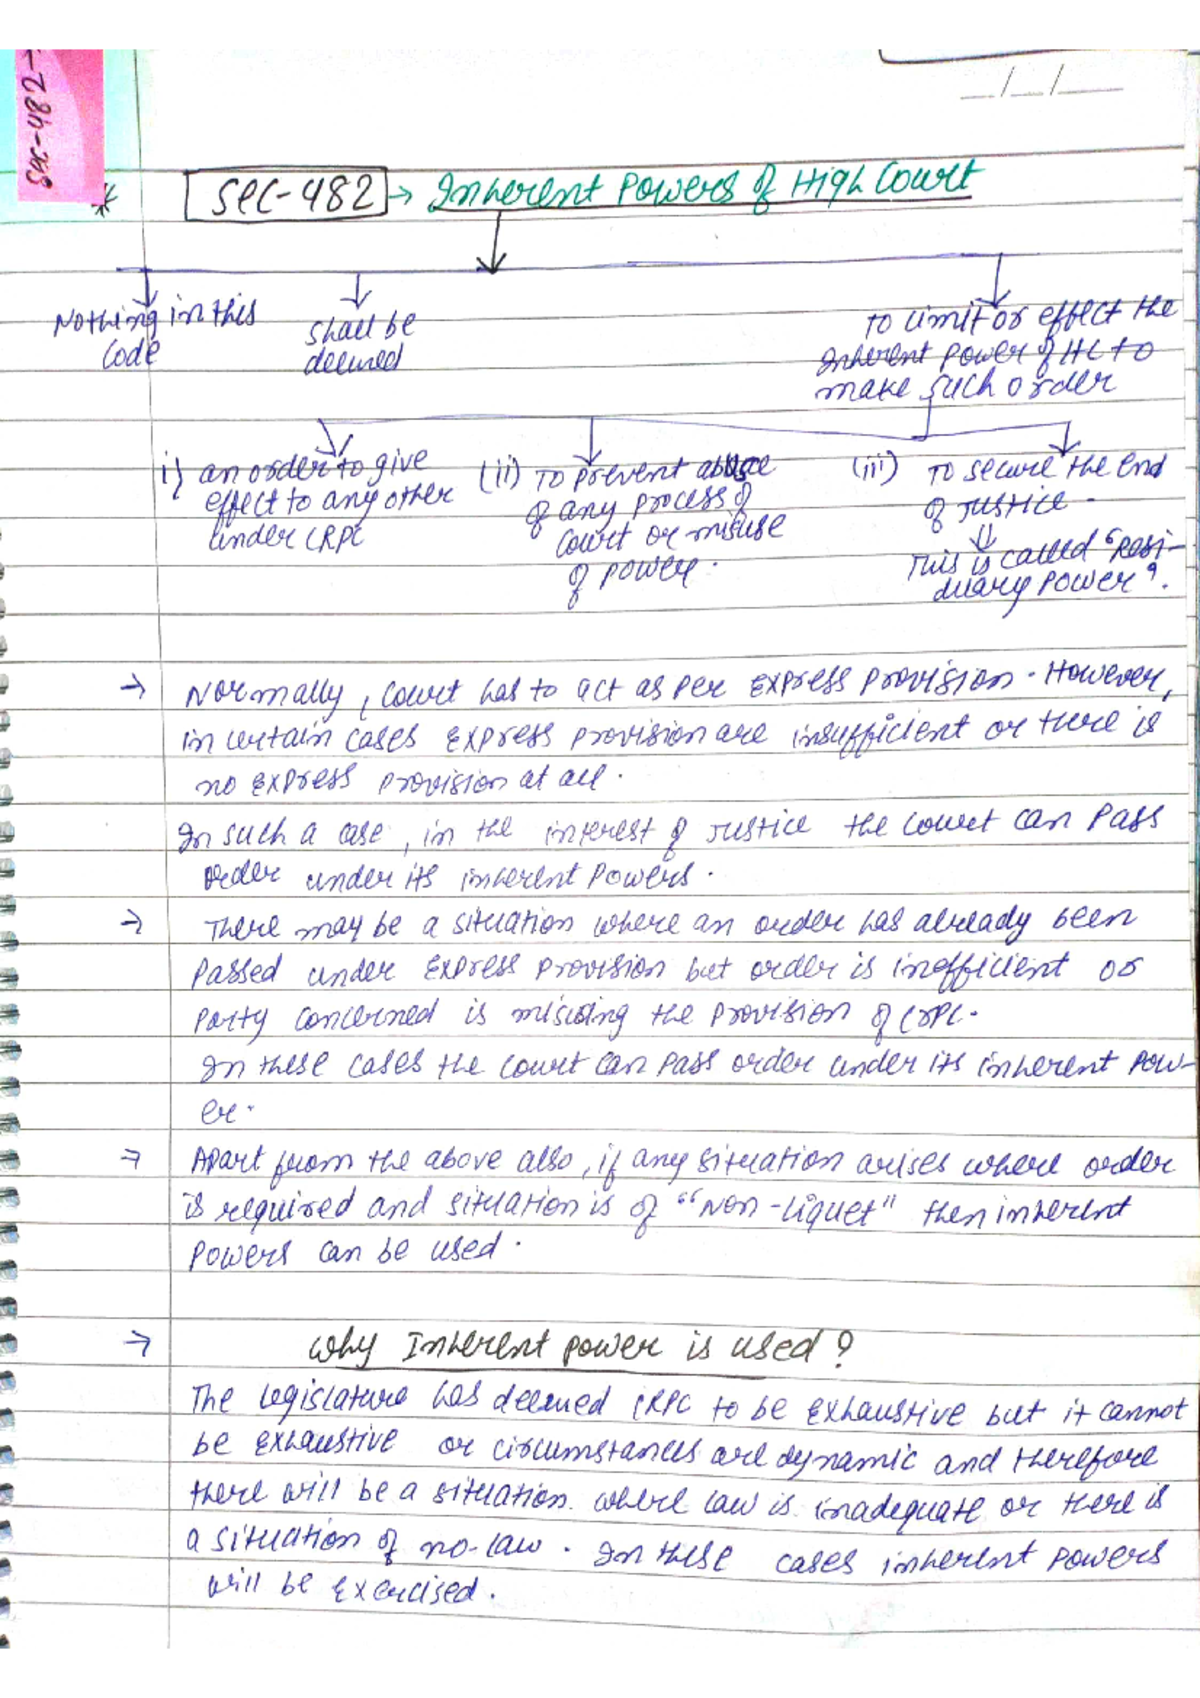 Sec-482
__/__/____
* Sec-482 → Inherent Powers of High Court
Nothing in this
Code
shall be
deemed
to limit or effect the
Inherent Power of HC to
make such order
i) an order to give
effect to any other
under CRPC
(ii) To prevent abuse
of any process of
Court or misuse
of power.
(iii) To secure the end
of Justice.
This is called "Resi-
duary Power".
→ Normally, Court has to act as per express provision. However,
in certain cases express provision are insufficient or there is
no express provision at all.
In such a case, in the interest of Justice the court can pass
order under its inherent Powers.
→ There may be a situation where an order has already been
Passed under express provision but order is inefficient or
Party concerned is the provision of CrPC.
In these cases the court can pass order under its inherent pow-
er.
→ Apart from the above also, if any situation arises where order
is required and situation is of "Non-Liquet" then inherent
Powers can be used.
→ Why Inherent power is used?
The Legislature has deemed CRPC to be exhaustive but it cannot
be exhaustive or circumstances are dynamic and therefore
there will be a situation where law is inadequate or there is
a situation of no-law. In these cases inherent powers
will be exercised.